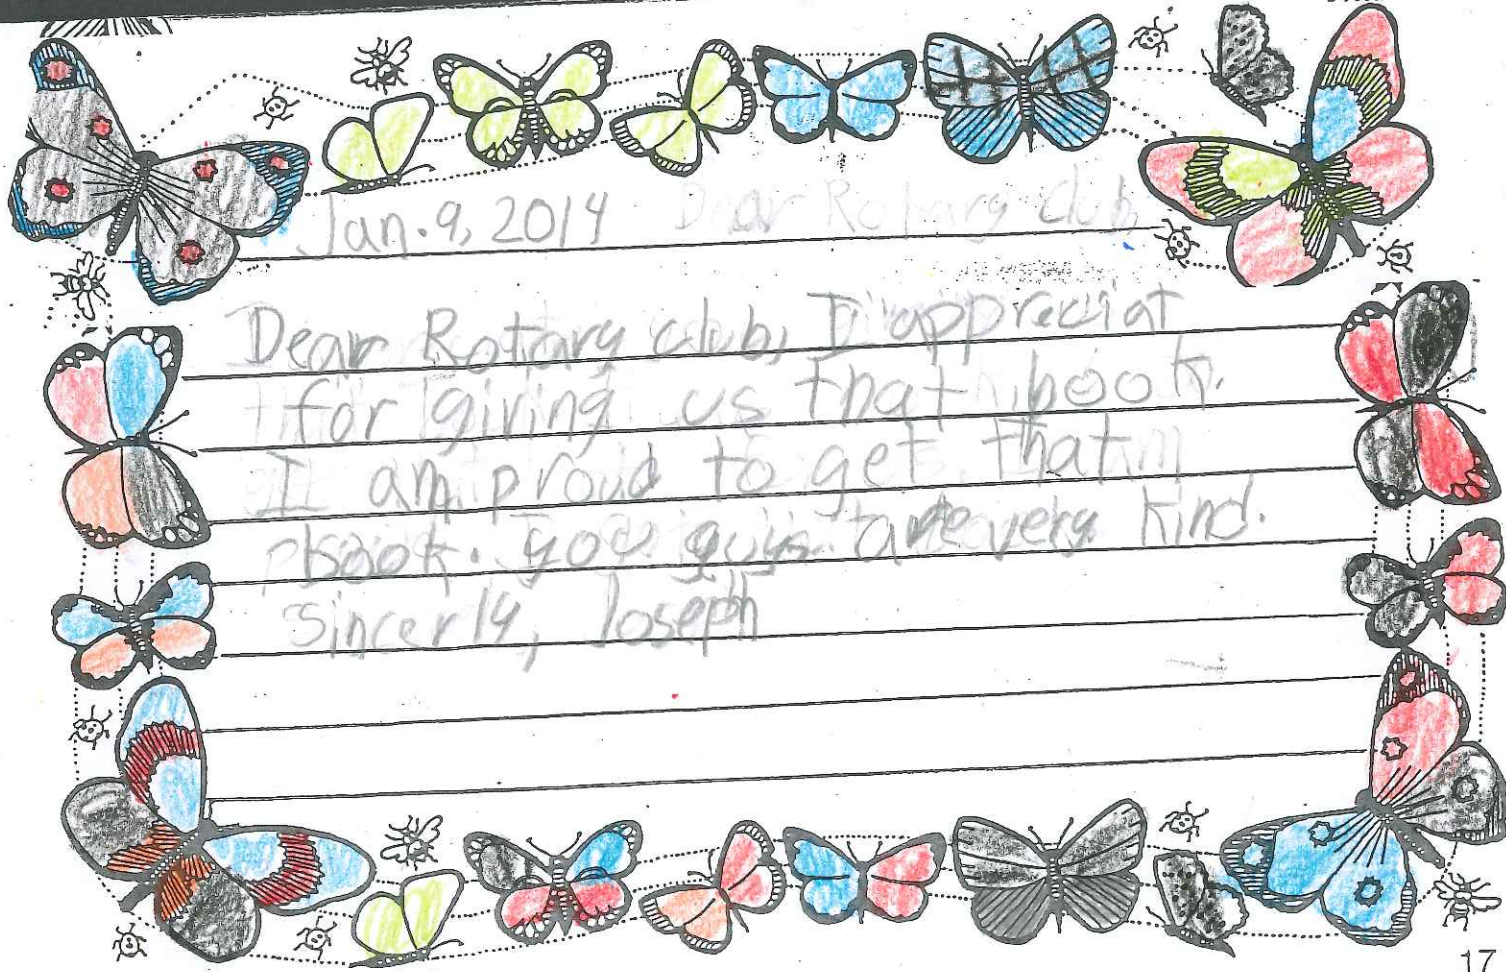 Jan. 9, 2014 Dear Rotary club,
Dear Rotary club, I appreciat
for giving us that book.
I am proud to get that
book. you guys are very kind.
Sincerly, Joseph
17